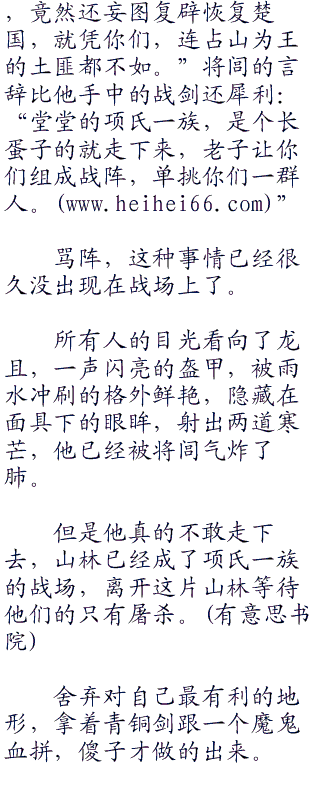 ，竟然还妄图复辟恢复楚
国，就凭你们，连占山为王
的土匪都不如。”将闾的言
辞比他手中的战剑还犀利：
“堂堂的项氏一族，是个长
蛋子的就走下来，老子让你
们组成战阵，单挑你们一群
人。(www.heihei66.com)”
骂阵，这种事情已经很
久没出现在战场上了。
所有人的目光看向了龙
且，一声闪亮的盔甲，被雨
水冲刷的格外鲜艳，隐藏在
面具下的眼眸，射出两道寒
芒，他已经被将闾气炸了
肺。
但是他真的不敢走下
去，山林已经成了项氏一族
的战场，离开这片山林等待
他们的只有屠杀。(有意思书
院)
舍弃对自己最有利的地
形，拿着青铜剑跟一个魔鬼
血拼，傻子才做的出来。